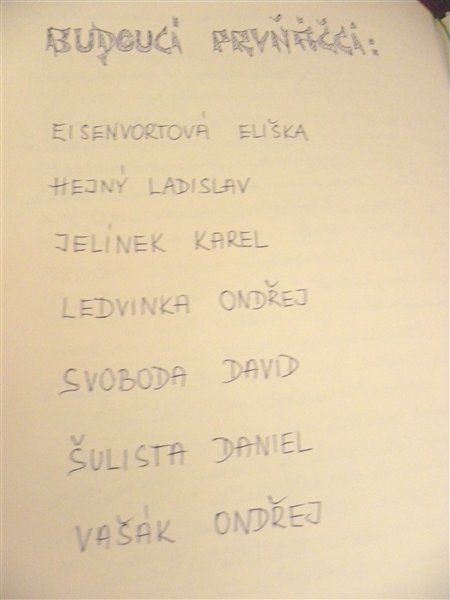 BUDOUCÍ PRVŇÁČCI:
EISENVORTOVÁ ELIŠKA
HEJNÝ LADISLAV
JELÍNEK KAREL
LEDVINKA ONDŘEJ
SVOBODA DAVID
ŠULISTA DANIEL
VAŠÁK ONDŘEJ